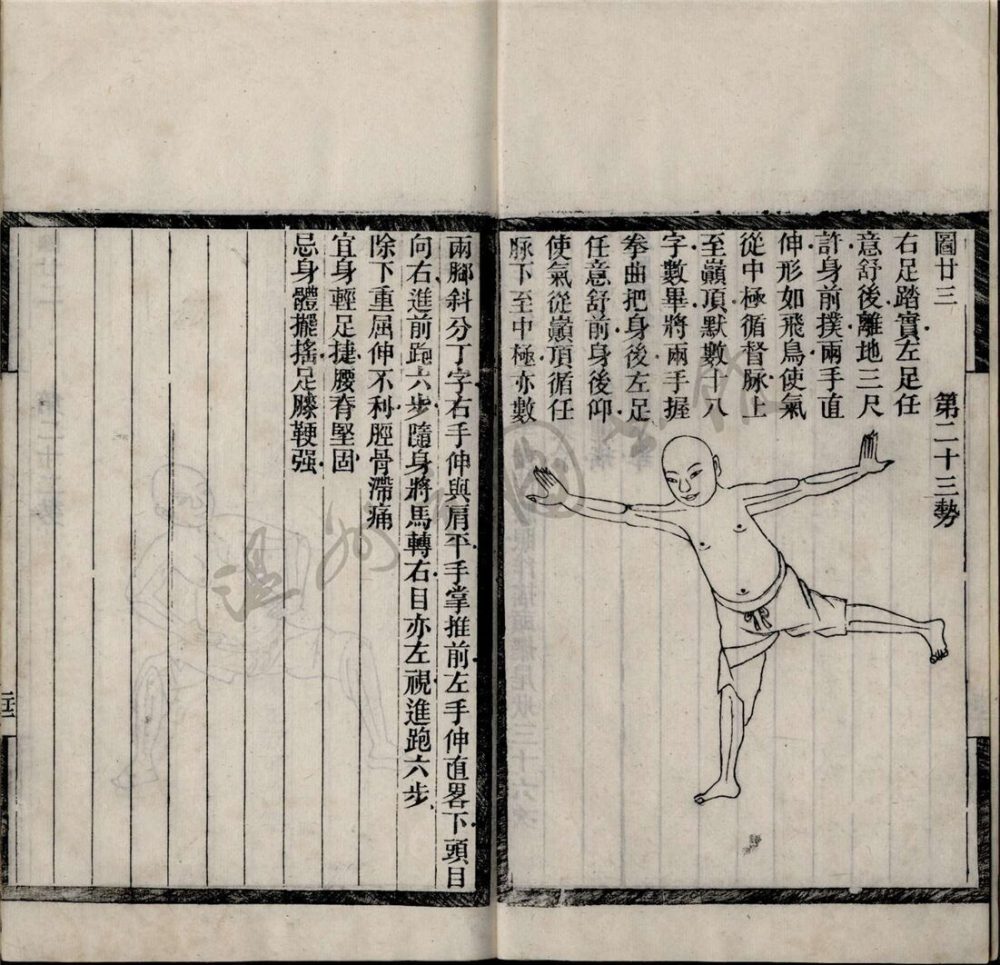 圖廿三　第二十三勢
右足踏實左足任
意舒後離地三尺
許身前撲兩手直
伸形如飛鳥使氣
從中極循督脉上
至巔頂默數十八
字數畢將兩手握
拳曲把身後左足
任意舒前身後仰
使氣從巔頂循任
脉下至中極亦數
兩腳斜分丁字右手伸與肩平手掌推前左手伸直畧下頭目
向右進前跑六步隨身將馬轉右目亦左視進跑六步
除下重屈伸不利脛骨滯痛
宜身輕足捷腰脊堅固
忌身體擺搖足膝鞕强